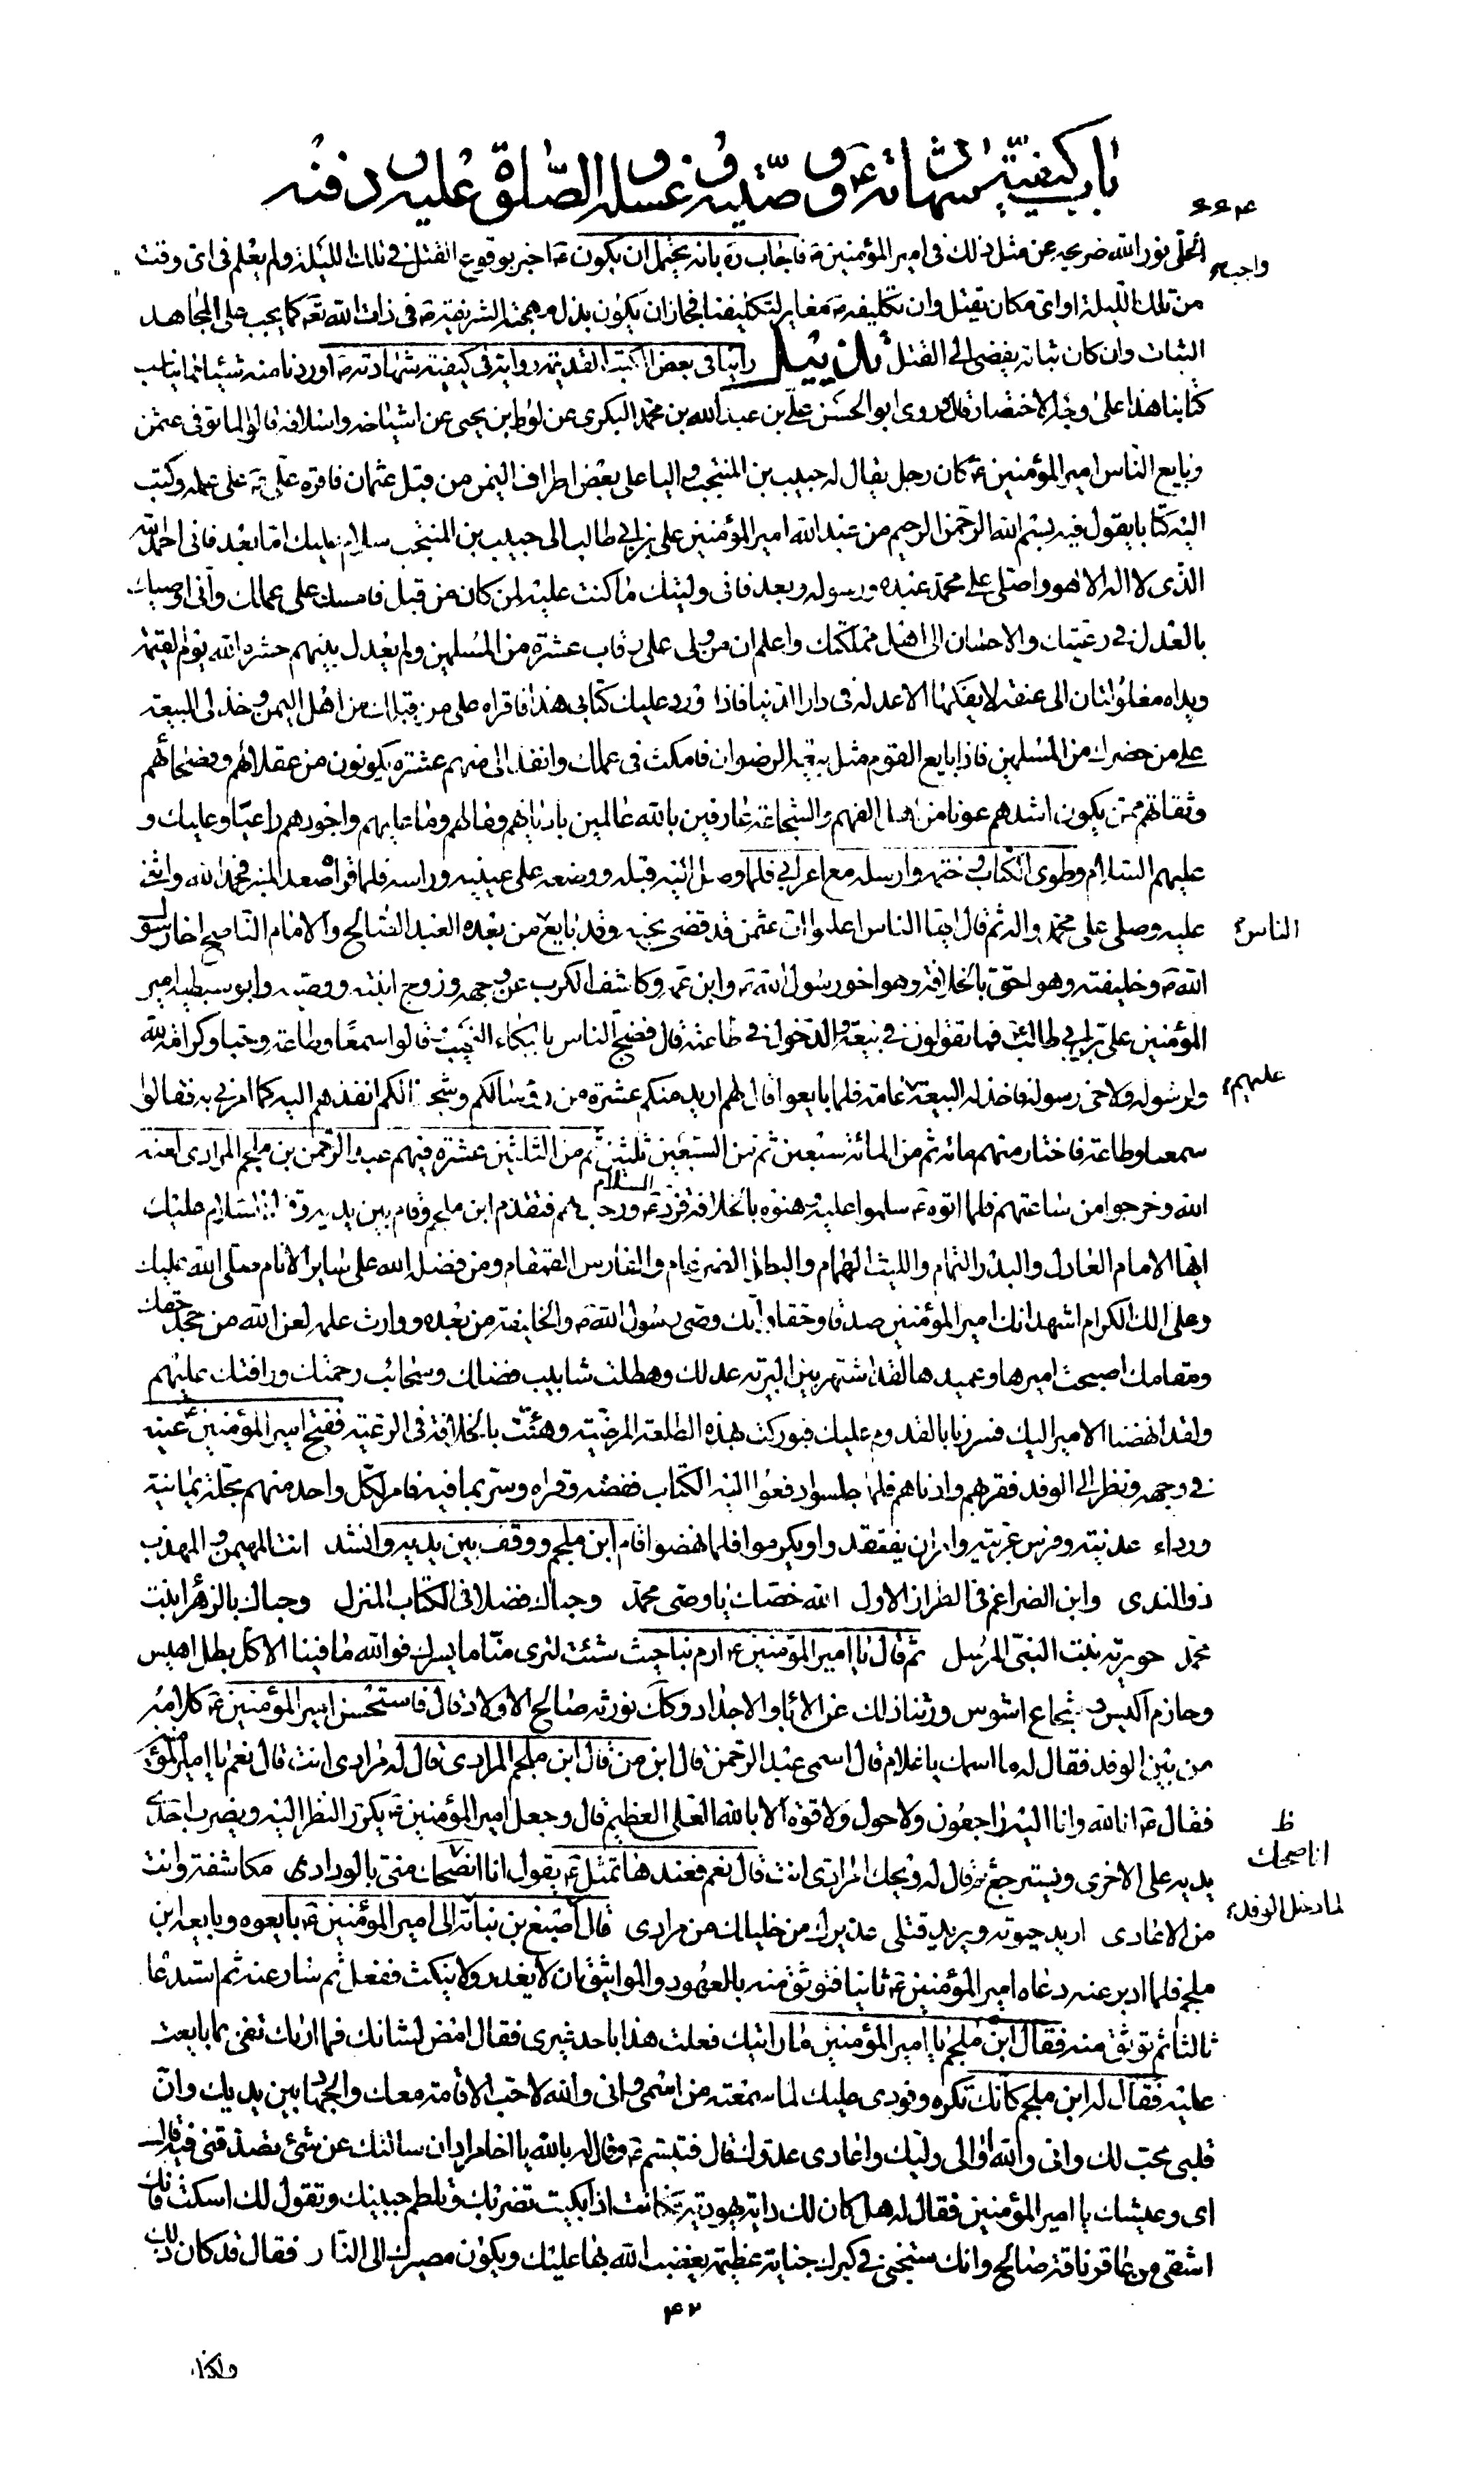 باب كيفيّة شهادته ع و وصيّته و غسله و الصّلاة عليه و دفنه
٦٦٤
الحلّي نور الله ضريحه عن مثل ذلك في امير المؤمنين ع فاجاب ره بانه يحتمل ان يكون ع اخبر بوقوع القتل في تلك الليلة ولم يعلم في اي وقت
من تلك الليلة او اي مكان يقتل وان تكليفه ع مغاير لتكليفنا فجاز ان يكون بذل مهجته الشريفة ع في ذات الله تع كما يجب على المجاهد
الثبات وان كان ثباته يفضي الى القتل تذييل راينا في بعض الكتب القديمة رواية في كيفية شهادته ع اوردنا منه شيئا مما يناسب
كتابنا هذا على وجه الاختصار قال روى ابو الحسن علي بن عبد الله بن محمد البكري عن لوط بن يحيى عن اشياخه واسلافه قالوا لما توفي عثمن
وبايع الناس امير المؤمنين ع كان رجل يقال له حبيب بن المنتجب واليا على بعض اطراف اليمن من قبل عثمان فاقره علي ع على عمله وكتب
اليه كتابا يقول فيه بسم الله الرحمن الرحيم من عبد الله امير المؤمنين علي بن ابي طالب الى حبيب بن المنتجب سلام عليك اما بعد فاني احمد الله
الذي لا اله الا هو واصلي على محمد عبده ورسوله وبعد فاني وليتك ما كنت عليه لمن كان من قبل فامسك على عملك واني اوصيك
بالعدل في رعيتك والاحسان الى اهل مملكتك واعلم ان من ولى على رقاب عشرة من المسلمين ولم يعدل بينهم حشره الله يوم القيمة
ويداه مغلولتان الى عنقه لا يفكها الا عدله في دار الدنيا فاذا ورد عليك كتابي هذا فاقراه على من قبلك من اهل اليمن وخذ لي البيعة
على من حضرك من المسلمين فاذا بايع القوم مثل بيعة الرضوان فامكث في عملك وانفذ الى منهم عشرة يكونون من عقلائهم وفصحائهم
وثقاتهم ممن يكون اشدهم عونا من اهل الفهم والشجاعة عارفين بالله عالمين باديانهم ومالهم وما عليهم واجودهم رايا وعليك و
عليهم السلام وطوى الكتاب وختمه وارسله مع اعرابي فلما وصل اليه قبله ووضعه على عينيه وراسه فلما قراه صعد المنبر فحمد الله واثنى
عليه وصلى على محمد واله ثم قال ايها الناس اعلموا ان عثمن قد قضى نحبه وقد بايع من بعده العبد الصالح والامام الناصح اخا رسول
الناس
الله ص وخليفته وهو احق بالخلافة وهو اخو رسول الله ص وابن عمه وكاشف الكرب عن وجهه وزوج ابنته ووصيه وابو سبطيه امير
المؤمنين علي بن ابي طالب فما تقولون في بيعته والدخول في طاعته قال فضج الناس بالبكاء والنحيب وقالوا سمعا وطاعة وحبا وكرامة لله
ولرسوله ولاخي رسوله فاخذ له البيعة عامة فلما بايعوا قال لهم اريد منكم عشرة من رؤسائكم وشجعانكم انفذهم اليه كما امرني به فقالوا
عليهم
سمعا وطاعة فاختار منهم مائة ثم من المائة سبعين ثم من السبعين ثلثين ثم من الثلثين عشرة فيهم عبد الرحمن بن ملجم المرادي لعنه
الله وخرجوا من ساعتهم فلما اتوه ع سلموا عليه وهنوه بالخلافة فرد ع السلام ورحب بهم فتقدم ابن ملجم وقام بين يديه وقال السلام عليك
ايها الامام العادل والبدر التمام والليث الهمام والبطل الضرغام والفارس القمقام ومن فضله الله على ساير الانام صلى الله عليك
وعلى الك الكرام اشهد انك امير المؤمنين صدقا وحقا وانك وصي رسول الله ص والخليفة من بعده ووارث علمه لعن الله من جحد حقك
ومقامك اصبحت اميرها وعميدها لقد اشتهر بين البرية عدلك وهطلت شابيب فضلك وسحائب رحمتك ورافتك عليهم
ولقد انهضنا الامير اليك فسررنا بالقدوم عليك فبوركت بهذه الطلعة المرضية وهنئت بالخلافة في الرعية ففتح امير المؤمنين ع عينيه
في وجهه ونظر الى الوفد فقربهم وادناهم فلما جلسوا دفعوا اليه الكتاب ففضه وقراه وسر بما فيه فامر لكل واحد منهم بحلة يمانية
ورداء عدنية وفرس عربية وامر ان يفتقدوا ويكرموا فلما نهضوا قام ابن ملجم ووقف بين يديه وانشد انت المهيمن والمهذب
ذو الندى وابن الضراغم في الطراز الاول الله خصك يا وصي محمد وحباك فضلا في الكتاب المنزل وحباك بالزهراء بنت
محمد حورية بنت النبي المرسل ثم قال يا امير المؤمنين ع ارم بنا حيث شئت لترى منا ما يسرك فوالله ما فينا الا كل بطل اهيس
وحازم اكيس وشجاع اشوس ورثنا ذلك عن الاباء والاجداد وكك نورثه صالح الاولاد قال فاستحسن امير المؤمنين ع كلامه
من بين الوفد فقال له ما اسمك يا غلام قال اسمي عبد الرحمن قال ابن من قال ابن ملجم المرادي قال له مرادي انت قال نعم يا امير المؤمنين
فقال ع انا لله وانا اليه راجعون ولا حول ولا قوة الا بالله العلي العظيم قال وجعل امير المؤمنين ع يكرر النظر اليه ويضرب احدى
يديه على الاخرى ويسترجع ثم قال له ويحك امرادي انت قال نعم فعندها تمثل ع يقول انا انصحك مني بالوداد مكاشفة وانت
ظ
انا صحك
من الاعادي اريد حيوته ويريد قتلي عذيرك من خليلك من مرادي قال اصبغ بن نباتة الى امير المؤمنين ع بايعوه وبايعه ابن
لما دخل الوفد
ملجم فلما ادبر عنه دعاه امير المؤمنين ع ثانيا فتوثق منه بالعهود والمواثيق ان لا يغدر ولا ينكث ففعل ثم سار عنه ثم استدعاه
ثالثا ثم توثق منه فقال ابن ملجم يا امير المؤمنين ما رايتك فعلت هذا باحد غيري فقال امض لشانك فما اراك تفي بما بايعت
عليه فقال له ابن ملجم كانك تكره وفودي عليك لما سمعته من اسمي واني والله لاحب الاقامة معك والجهاد بين يديك وان
قلبي محب لك واني والله اوالي وليك واعادي عدوك قال فتبسم ع وقال له بالله يا اخا مراد ان سالتك عن شئ تصدقني فيه قال
اي وعيشك يا امير المؤمنين فقال له هل كان لك داية يهودية فكانت اذا بكيت تضربك وتلطم جبينك وتقول لك اسكت فانك
اشقى من عاقر ناقة صالح وانك ستجني في كبرك جناية عظيمة يغضب الله بها عليك ويكون مصيرك الى النار فقال قد كان ذلك
٤٢